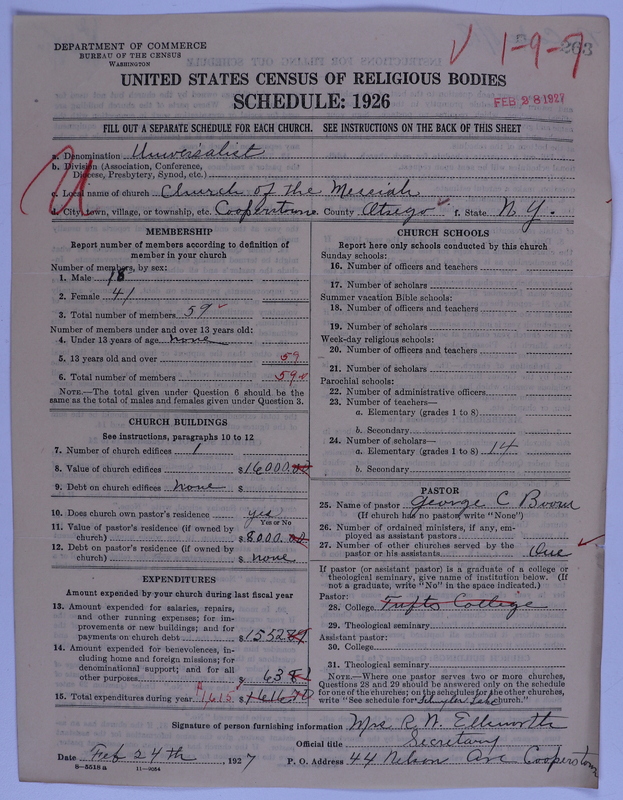 DEPARTMENT OF COMMERCE
BUREAU OF THE CENSUS
WASHINGTON
V 1-9-7
263
UNITED STATES CENSUS OF RELIGIOUS BODIES
SCHEDULE: 1926
FEB 28 1927
FILL OUT A SEPARATE SCHEDULE FOR EACH CHURCH. SEE INSTRUCTIONS ON THE BACK OF THIS SHEET
a. Denomination Universalist
b. Division (Association, Conference,
Diocese, Presbytery, Synod, etc.)
c. Local name of church Church of The Messiah
d. City, town, village, or township, etc. Cooperstown e. County Otsego f. State N.Y.
MEMBERSHIP
Report number of members according to definition of
member in your church
Number of members, by sex:
1. Male 18
2. Female 41
3. Total number of members 59
Number of members under and over 13 years old:
4. Under 13 years of age none
5. 13 years old and over 59
6. Total number of members 59
NOTE.—The total given under Question 6 should be the
same as the total of males and females given under Question 3.
CHURCH BUILDINGS
See instructions, paragraphs 10 to 12
7. Number of church edifices 1
8. Value of church edifices $16000.00
9. Debt on church edifices none $
10. Does church own pastor's residence yes
Yes or No
11. Value of pastor's residence (if owned by
church) $8000.00
12. Debt on pastor's residence (if owned by
church) $ none
EXPENDITURES
Amount expended by your church during last fiscal year
13. Amount expended for salaries, repairs,
and other running expenses; for im-
provements or new buildings; and for
payments on church debt $1552
14. Amount expended for benevolences, in-
cluding home and foreign missions; for
denominational support; and for all
other purposes $ 63
15. Total expenditures during year 1615 $1616
CHURCH SCHOOLS
Report here only schools conducted by this church
Sunday schools:
16. Number of officers and teachers
17. Number of scholars
Summer vacation Bible schools:
18. Number of officers and teachers
19. Number of scholars
Week-day religious schools:
20. Number of officers and teachers
21. Number of scholars
Parochial schools:
22. Number of administrative officers
23. Number of teachers—
a. Elementary (grades 1 to 8)
b. Secondary
24. Number of scholars—
a. Elementary (grades 1 to 8) 14
b. Secondary
PASTOR
25. Name of pastor George C Boorn
(If church has no pastor, write "None")
26. Number of ordained ministers, if any, em-
ployed as assistant pastors
27. Number of other churches served by the
pastor or his assistants One
If pastor (or assistant pastor) is a graduate of a college or
theological seminary, give name of institution below. (If
not a graduate, write "No" in the space indicated.)
Pastor:
28. College Tufts College
29. Theological seminary
Assistant pastor:
30. College
31. Theological seminary
NOTE.—Where one pastor serves two or more churches,
Questions 28 and 29 should be answered only on the schedule
for one of the churches; on the schedules for the other churches,
write "See schedule for Schuyler Lake church."
Signature of person furnishing information Mrs R. W. Ellsworth
Official title Secretary
Date Feb 24th 1927 P. O. Address 44 Nelson Ave Cooperstown
8—5518 a 11—9054